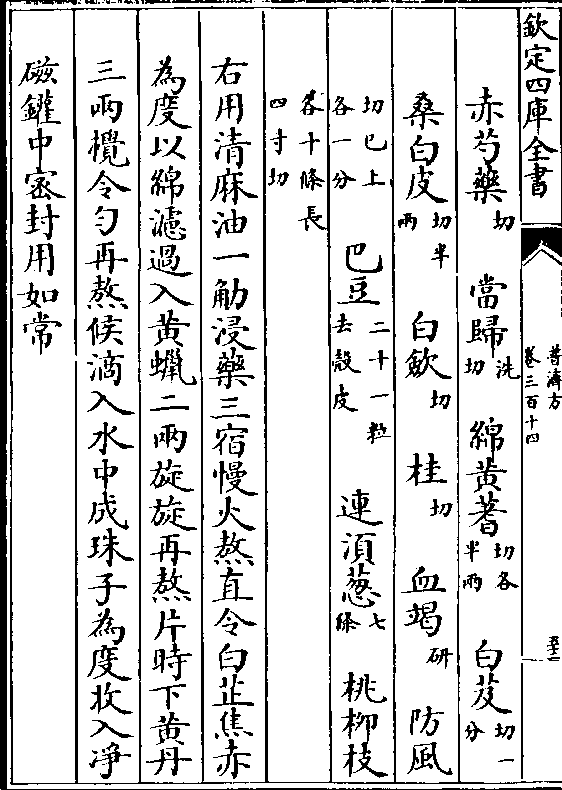 欽定四庫全書
普濟方
卷三百十四
赤芍藥切 當歸洗切 綿黄蓍切各半兩 白芨切一分
桑白皮切半兩 白歛切 桂切 血竭研 防風
切巳上各一分 巴豆二十一粒去殻皮 連湏葱七條 桃柳枝
各十條長四寸切
右用清麻油一觔浸藥三宿慢火熬直令白芷焦赤
為度以綿濾過入黄蠟二兩旋旋再熬片時下黄丹
三兩攪令勻再熬候滴入水中成珠子為度收入凈
磁鑵中密封用如常